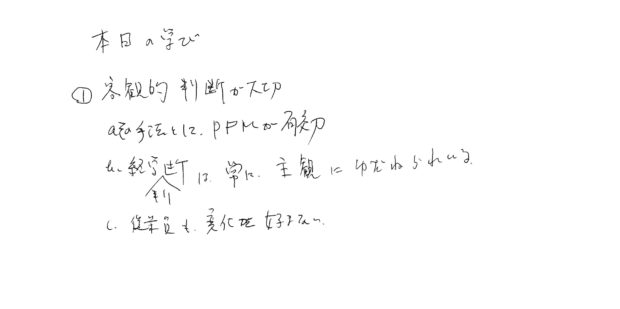 本日の学び
① 客観的判断が大切
a. 手法として、PPMが有効
b. 経営判断は、常に、主観にゆだねられている。
c. 従業員も、変化を好まない。